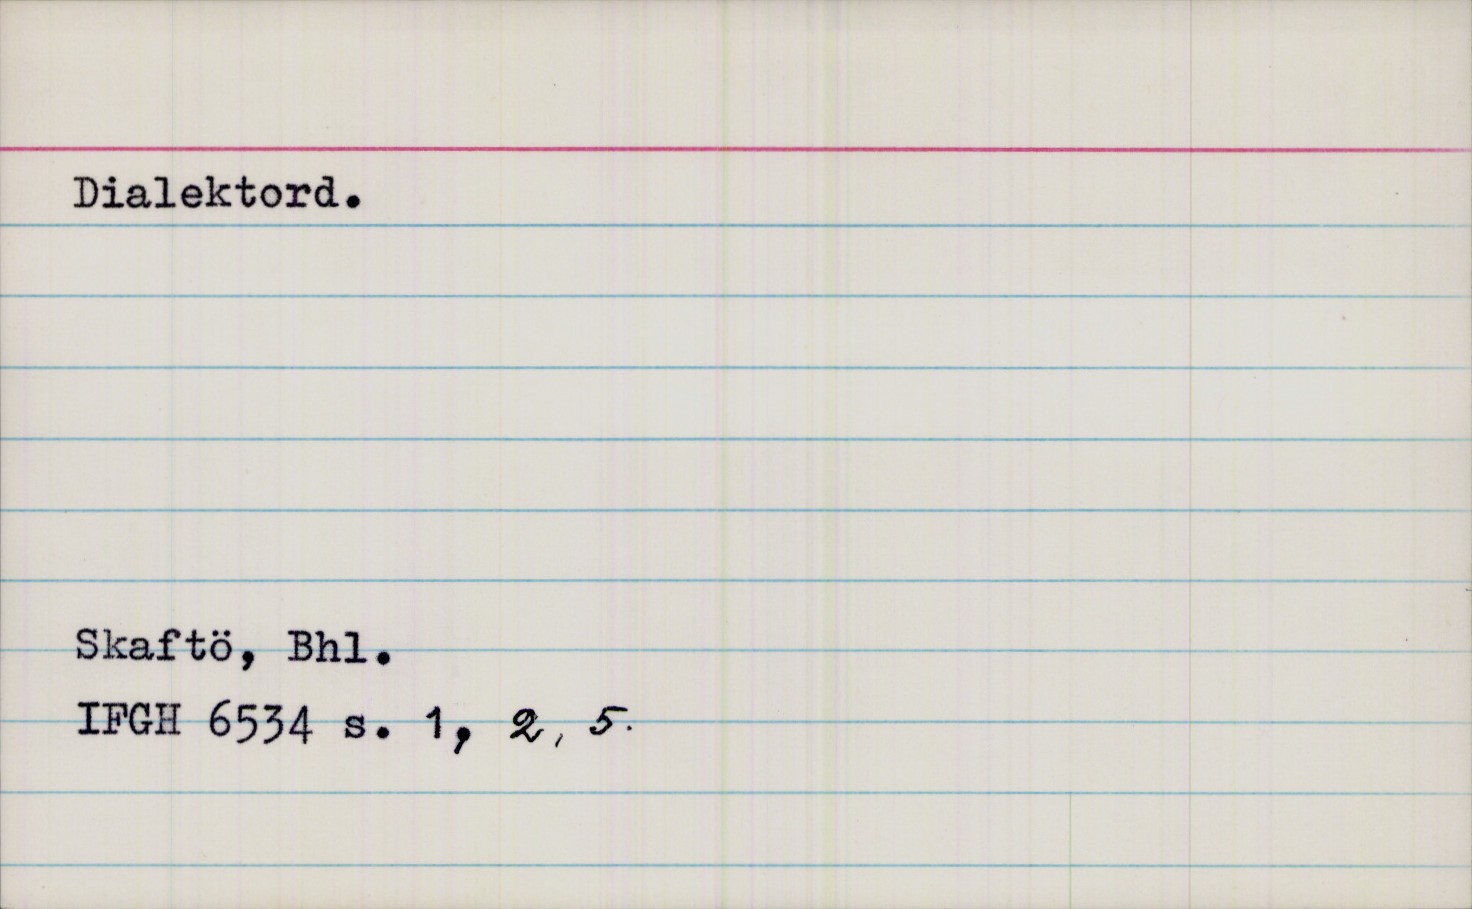 Dialektord.
Skaftö, Bhl.
IFGH 6534 s. 1, 2, 5.